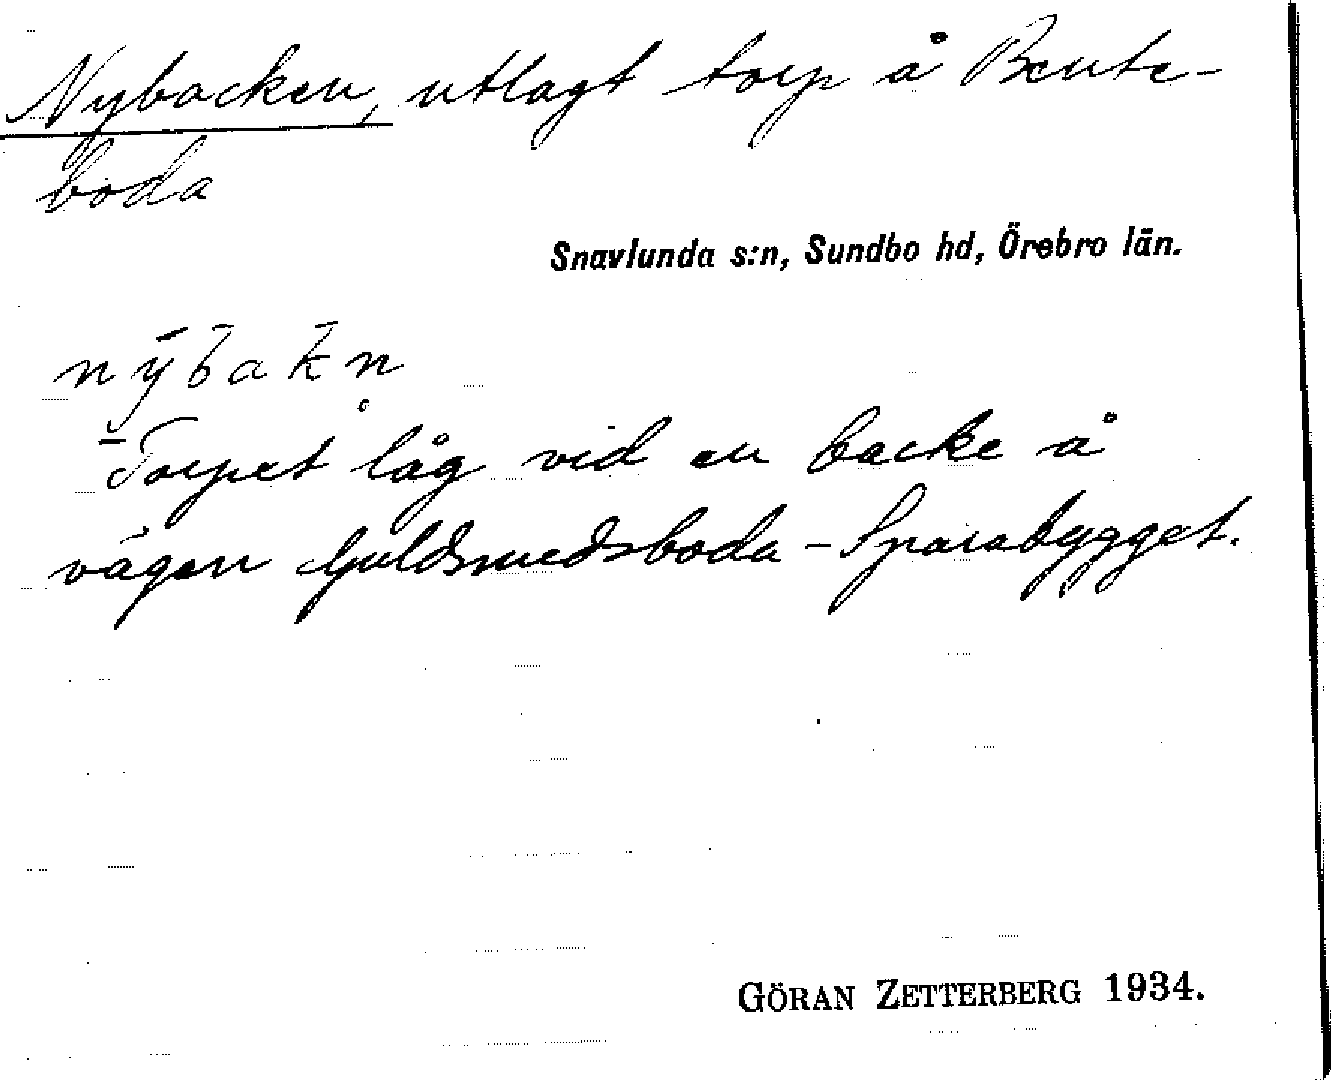 Nybacken, utlagt torp å Bente-
boda
Snavlunda s:n, Sundbo hd, Örebro län.
nybakn
Torpet låg vid en backe å
vägen Guldsmedsboda - Sparabygget.
GÖRAN ZETTERBERG 1934.